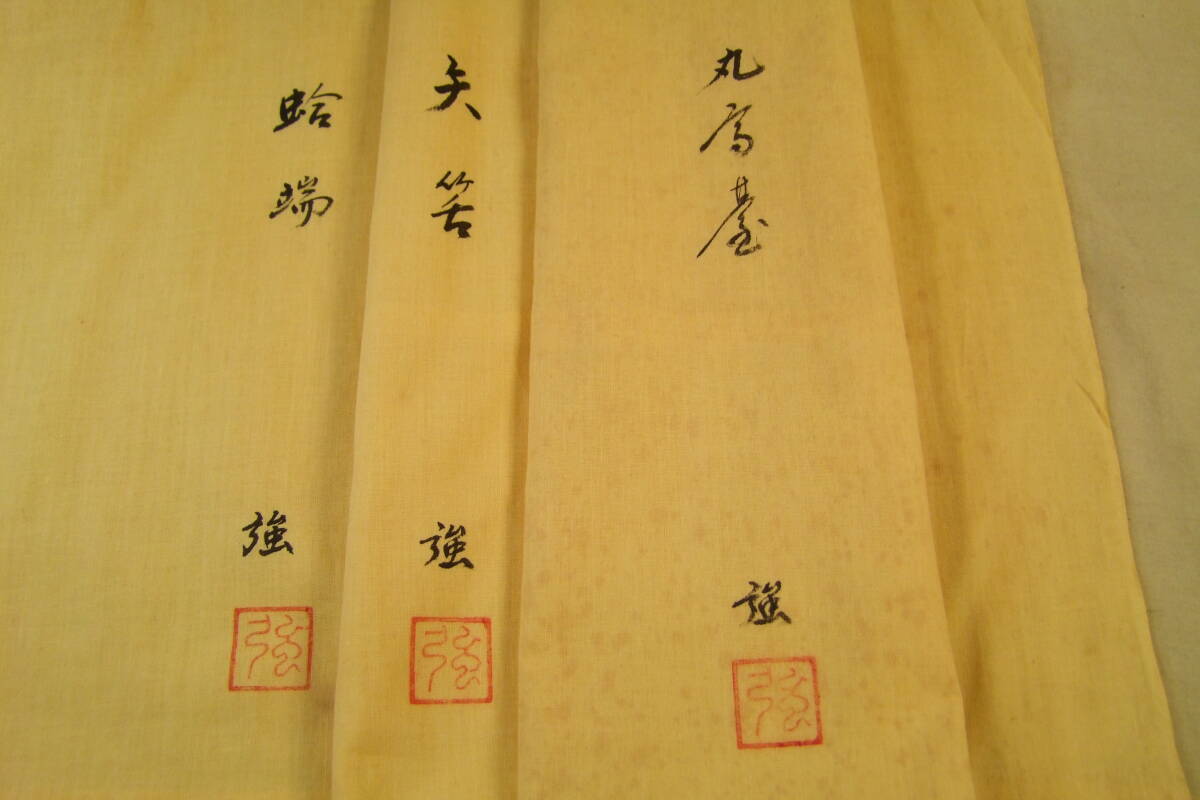 丸高臺
強
強
矢筈
強
強
蛤端
強
強